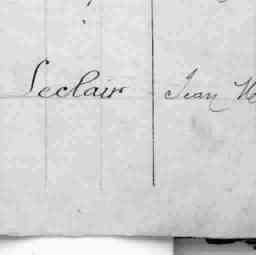 Leclair Jean